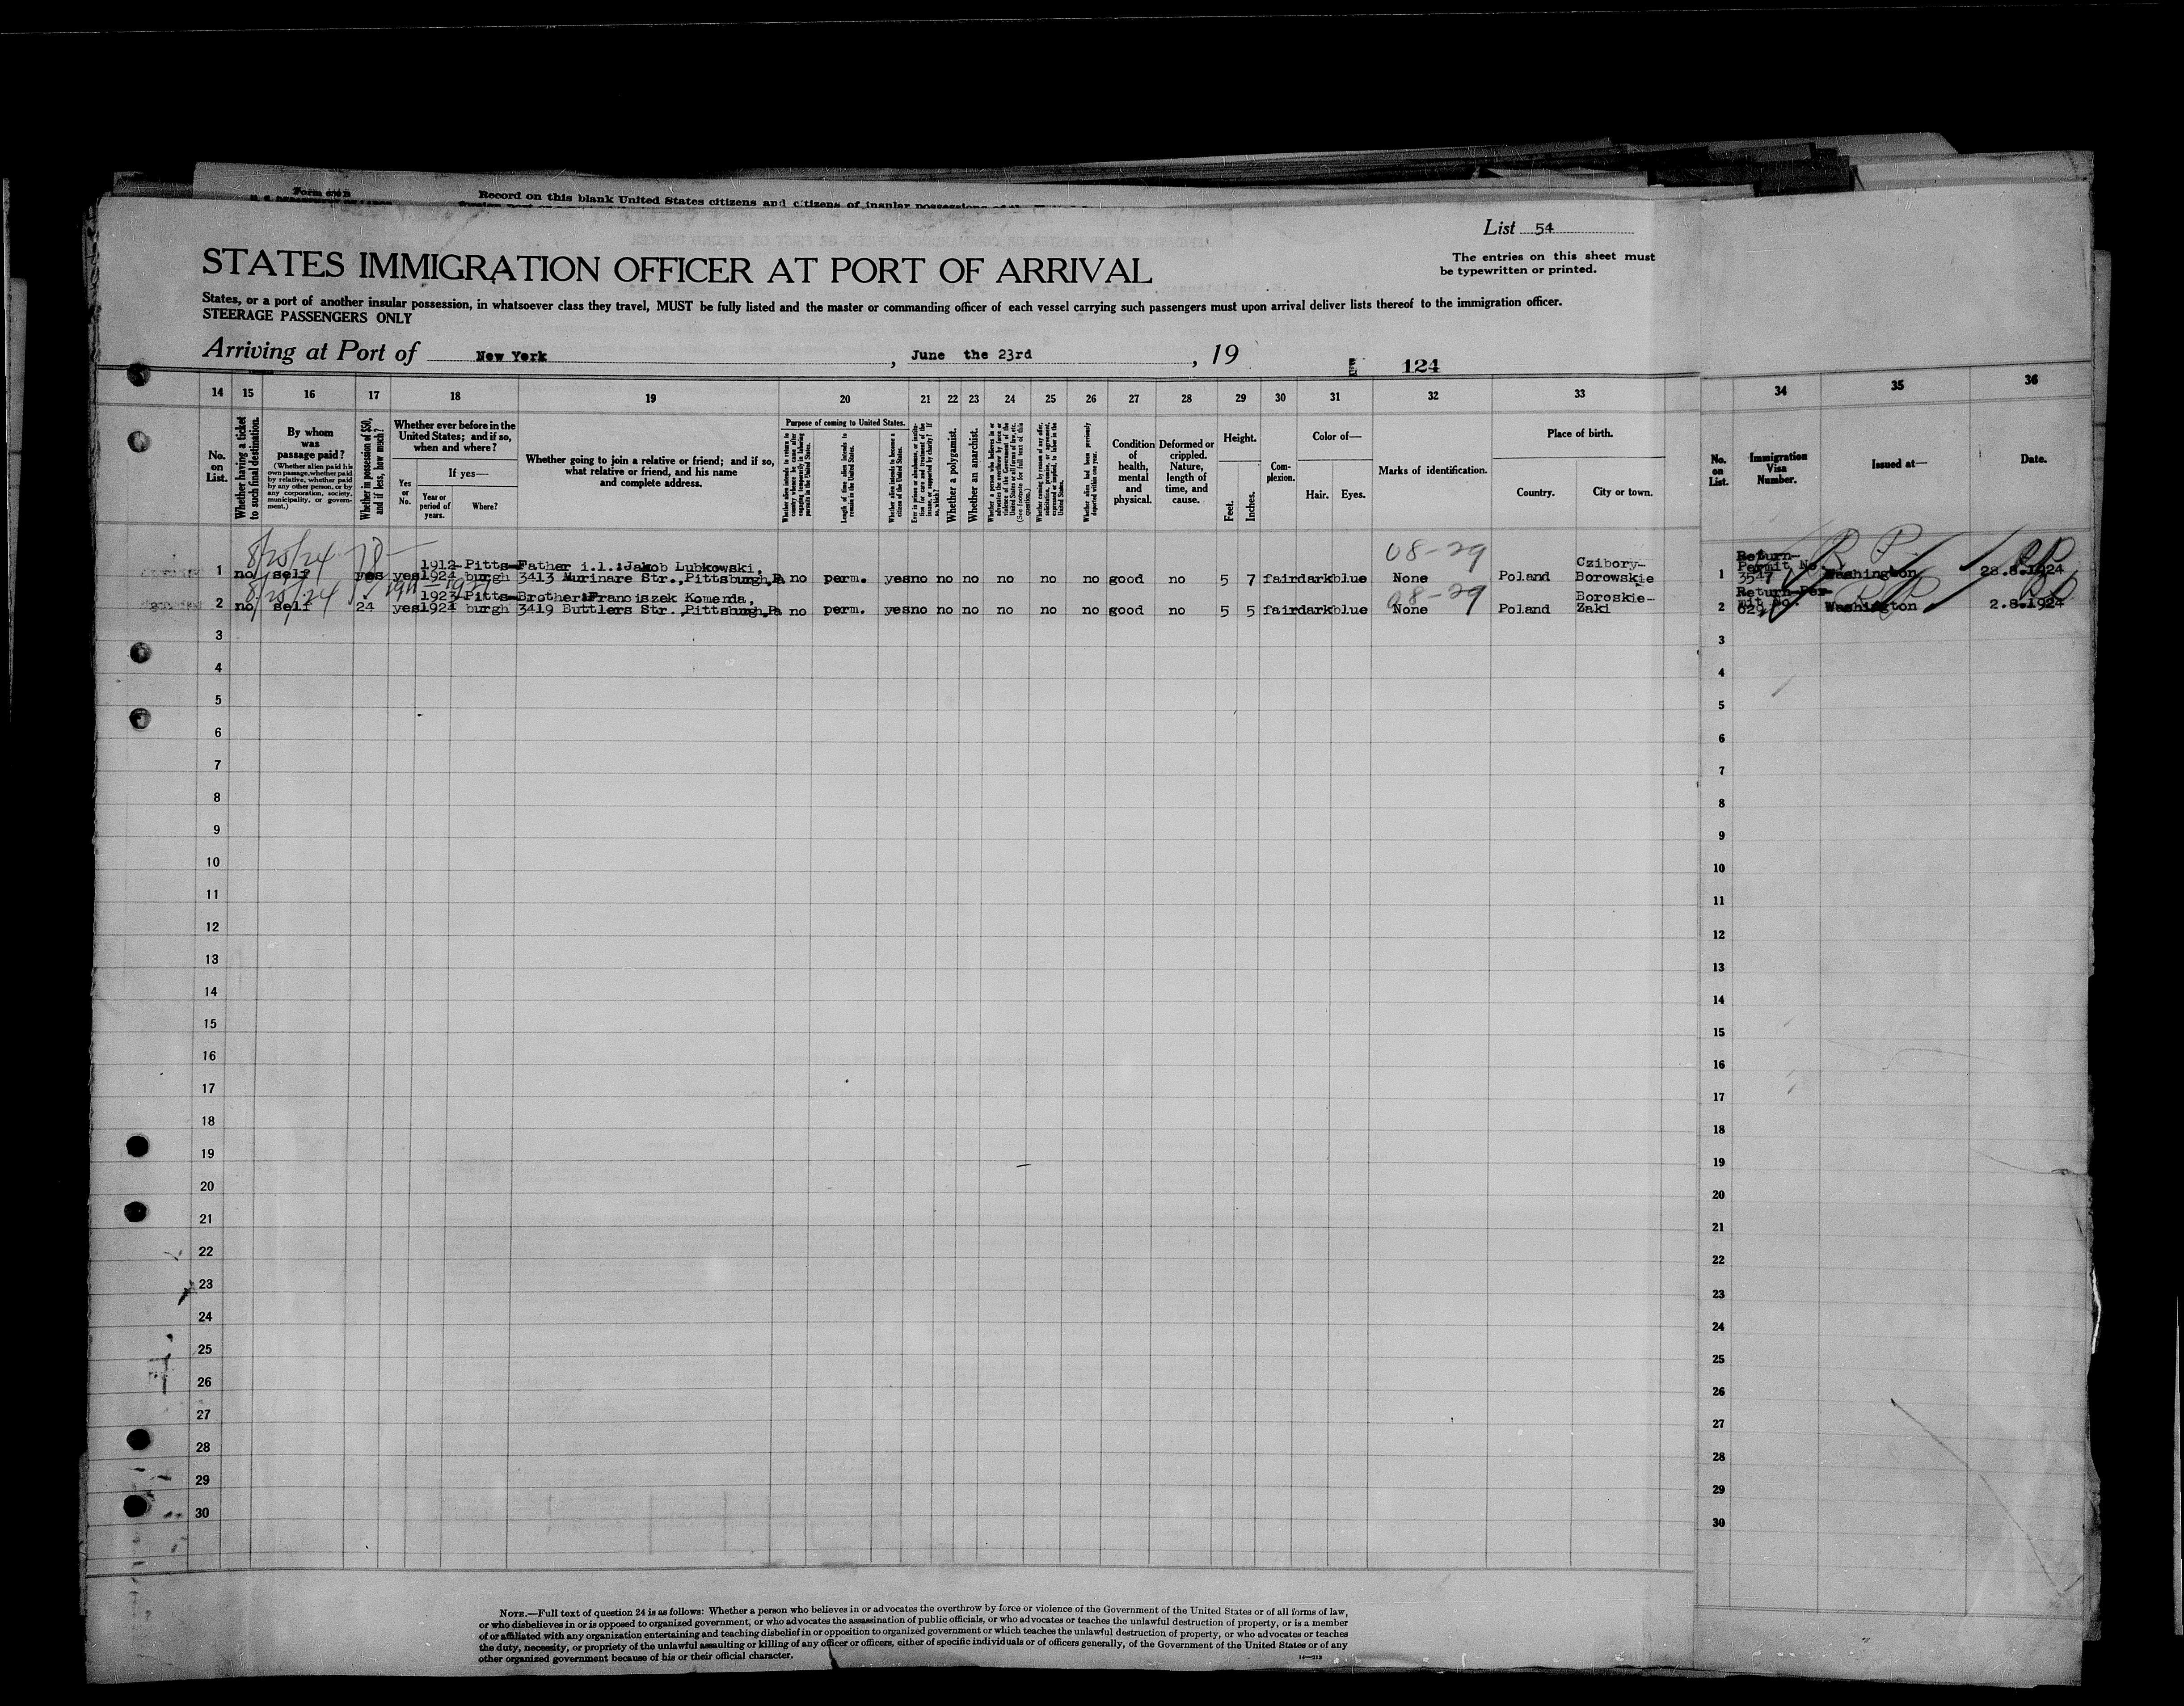 Record on this blank United States citizens and citizens of insular possessions
List 54
The entries on this sheet must
be typewritten or printed.
STATES IMMIGRATION OFFICER AT PORT OF ARRIVAL
States, or a port of another insular possession, in whatsoever class they travel, MUST be fully listed and the master or commanding officer of each vessel carrying such passengers must upon arrival deliver lists thereof to the immigration officer.
STEERAGE PASSENGERS ONLY
Arriving at Port of New York, June the 23rd, 19
124
14 15 16 17 18 19 20 21 22 23 24 25 26 27 28 29 30 31 32 33 34 35 36
No. on List.
Whether having a ticket to such final destination.
By whom was passage paid?
(Whether alien paid his own passage, whether paid by relative, whether paid by any other person, or by any corporation, society, municipality, or government.)
Whether in possession of $50, and if less, how much?
Whether ever before in the United States; and if so, when and where?
Yes or No.
If yes—
Year or period of years.
Where?
Whether going to join a relative or friend; and if so, what relative or friend, and his name and complete address.
Purpose of coming to United States.
Length of time alien intends to remain in the United States.
Whether alien intends to become a citizen of the United States.
Whether a polygamist.
Whether an anarchist.
Condition of health, mental and physical.
Deformed or crippled. Nature, length of time, and cause.
Height.
Feet.
Inches.
Complexion.
Color of—
Hair.
Eyes.
Marks of identification.
Place of birth.
Country.
City or town.
No. on List.
Immigration Visa Number.
Issued at—
Date.
8/25/24
08-29
1912- Pitts- Father i.l.:Jakob Lubkowski, Czibory- Return-Permit No
1 no self yes yes 1924 burgh 3413 Murinare Str., Pittsburgh,Pa no perm. yes no no no no no no good no 5 7 fair dark blue None Poland Borowskie 1 3547 Washington 28.8.1924
8/25/24
08-29
1923- Pitts- Brother:Franciszek Komenda, Boroskie- Return-Per-
2 no self 24 yes 1924 burgh 3419 Buttlers Str., Pittsburgh,Pa no perm. yes no no no no no no good no 5 5 fair dark blue None Poland Zaki 2 mit No. Washington 2.8.1924
3 3
4 4
5 5
6 6
7 7
8 8
9 9
10 10
11 11
12 12
13 13
14 14
15 15
16 16
17 17
18 18
19 19
20 20
21 21
22 22
23 23
24 24
25 25
26 26
27 27
28 28
29 29
30 30
NOTE.—Full text of question 24 is as follows: Whether a person who believes in or advocates the overthrow by force or violence of the Government of the United States or of all forms of law,
or who disbelieves in or is opposed to organized government, or who advocates the assassination of public officials, or who advocates or teaches the unlawful destruction of property, or is a member
of or affiliated with any organization entertaining and teaching disbelief in or opposition to organized government or which teaches the unlawful destruction of property, or who advocates or teaches
the duty, necessity, or propriety of the unlawful assaulting or killing of any officer or officers, either of specific individuals or of officers generally, of the Government of the United States or of any
other organized government because of his or their official character.